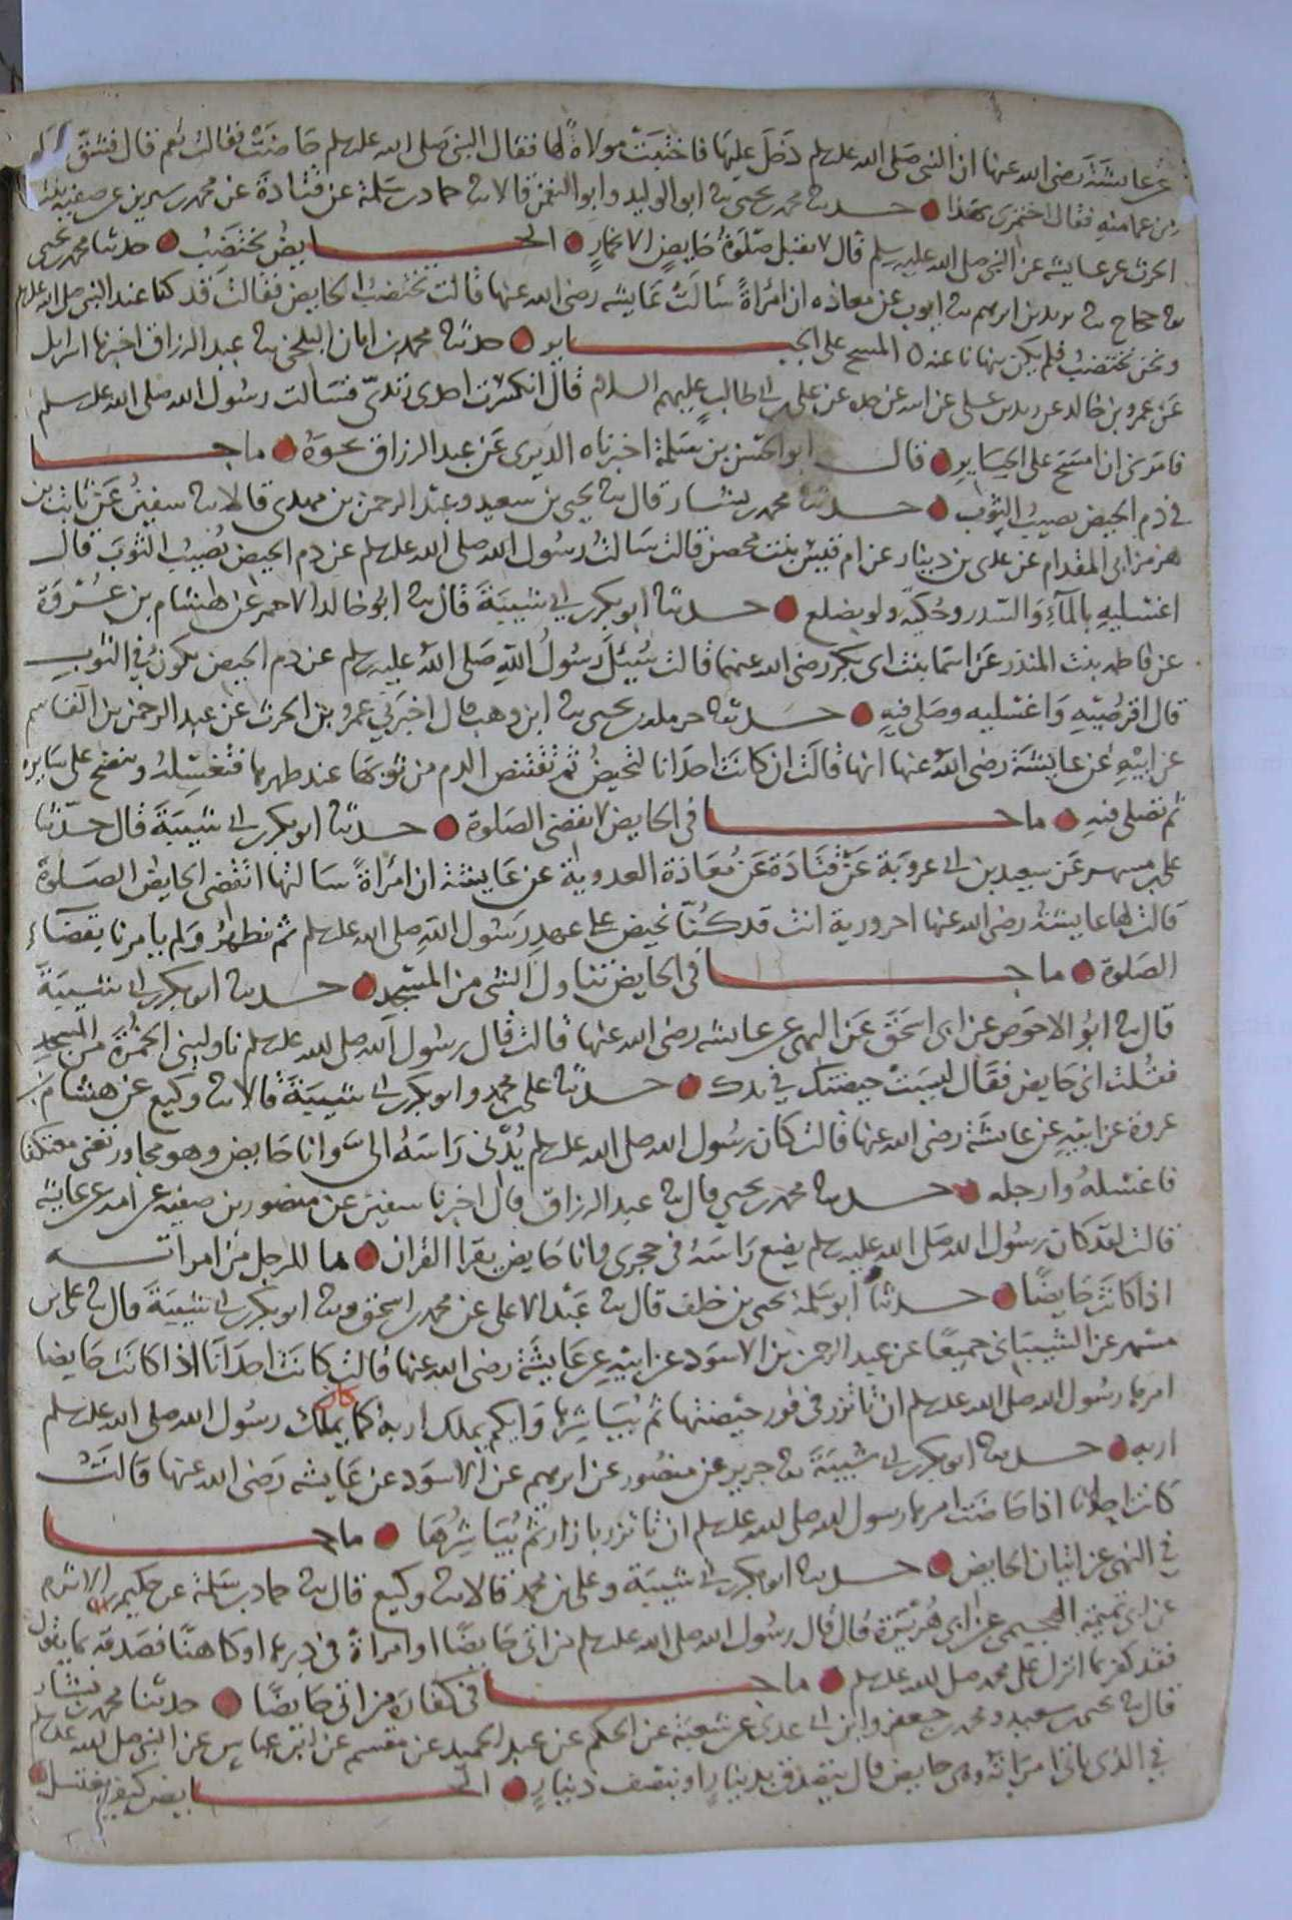 عن عايشة رضى الله عنها ان النبى صلى الله عليه وسلم دخل عليها فاختبت مولاة لها فقال النبى صلى الله عليه وسلم حاضت فقالت نعم قال فشق لها
من عمامته فقال اختمرى بهذا حدثنا محمد بن يحيى ثنا ابو الوليد وابو النعمن قالا ثنا حماد بن سلمة عن قتادة عن محمد بن سيرين عن صفية بنت
الحرث عن عايشة عن النبى صلى الله عليه وسلم قال لا تقبل صلوة حايض الا بخمار الحايض تختضب حدثنا محمد بن يحيى
ثنا حجاج ثنا يزيد بن ابرهيم ثنا ايوب عن معاذه ان امرأة سألت عايشه رضى الله عنها قالت تختضب الحايض فقالت قد كنا عند النبى صلى الله عليه وسلم
ونحن نختضب فلم يكن ينهانا عنه المسح على الجبا ير حدثنا محمد بن ابان البلخى ثنا عبد الرزاق اخبرنا اسرايل
عن عمرو بن خالد عن زيد بن على عن ابيه عن جده عن على بن ابى طالب عليهم السلام قال انكسرت احدى زندىّ فسالت رسول الله صلى الله عليه وسلم
فامرنى ان امسح على الجباير قال ابو الحسن بن سلمة اخبرناه الدبرى عن عبد الرزاق نحوه ما جا
فى دم الحيض يصيب الثوب حدثنا محمد بن بشار قال ثنا يحيى بن سعيد وعبد الرحمن بن مهدى قالا ثنا سفين عن ثابت بن
هرمز ابى المقدام عن عدى بن دينار عن ام قيس بنت محصن قالت سالت رسول الله صلى الله عليه وسلم عن دم الحيض يصيب الثوب قال
اغسليه بالمآء والسدر وحكيه ولو بضلع حدثنا ابو بكر بن ابى شيبة قال ثنا ابو خالد الاحمر عن هشام بن عروة
عن فاطمه بنت المنذر عن اسما بنت ابى بكر رضى الله عنهما قالت سُئل رسول الله صلى الله عليه وسلم عن دم الحيض يكون فى الثوب
قال اقرصيه واغسليه وصلى فيه حدثنا حرمله بن يحيى ثنا ابن وهب قال اخبرنى عمرو بن الحرث عن عبد الرحمن بن القاسم
عن ابيه عن عايشة رضى الله عنها انها قالت ان كانت احدانا لتحيض ثم تقتنص الدم من ثوبها عند طهرها فتغسله وتنضح على سايره
ثم تصلى فيه ما جا فى الحايض لا تقضى الصلوة حدثنا ابو بكر بن ابى شيبة قال حدثنا
على بن مسهر عن سعيد بن ابى عروبة عن قتادة عن معاذة العدوية عن عايشة ان امرأة سالتها اتقضى الحايض الصلوة
قالت لها عايشة رضى الله عنها احرورية انت قد كنا نحيض على عهد رسول الله صلى الله عليه وسلم ثم نطهر ولم يامرنا بقضاء
الصلوة ما جا فى الحايض تتناول الشى من المسجد حدثنا ابو بكر بن ابى شيبة
قال ثنا ابو الاحوص عن ابى اسحق عن البهى عن عايشه رضى الله عنها قالت قال رسول الله صلى الله عليه وسلم ناولينى الخمرة من المسجد
فقلت انى حايض فقال ليست حيضتك فى يدك حدثنا على بن محمد وابو بكر بن ابى شيبة قالا ثنا وكيع عن هشام بن
عروة عن ابيه عن عايشة رضى الله عنها قالت كان رسول الله صلى الله عليه وسلم يدنى رأسه الىّ وانا حايض وهو مجاور تعنى معتكفا
فاغسله وارجله حدثنا محمد بن يحيى قال ثنا عبد الرزاق قال اخبرنا سفين عن منصور بن صفيه عن امه عن عايشه
قالت لقد كان رسول الله صلى الله عليه وسلم يضع رأسه فى حجرى وانا حايض يقرا القران ما للرجل من امراته
اذا كانت حايضًا حدثنا ابو سلمة يحيى بن خلف قال ثنا عبد الاعلى عن محمد بن اسحق وثنا ابو بكر بن ابى شيبة قال ثنا على بن
مسهر عن الشيبانى جميعا عن عبد الرحمن بن الاسود عن ابيه عن عايشة رضى الله عنها قالت كانت احدانا اذا كانت حايضا
امرها رسول الله صلى الله عليه وسلم ان تاتزر فى فور حيضتها ثم يباشرها وايكم يملك اربه كما كان يملك رسول الله صلى الله عليه وسلم
اربه حدثنا ابو بكر بن ابى شيبة ثنا جرير عن منصور عن ابرهيم عن الاسود عن عايشه رضى الله عنها قالت
كانت احدانا اذا حاضت امرها رسول الله صلى الله عليه وسلم ان تاتزر بازار ثم يباشرها ما جا
فى النهى عن اتيان الحايض حدثنا ابو بكر بن ابى شيبة وعلى بن محمد قالا ثنا وكيع قال ثنا حماد بن سلمة عن حكيم الاثرم
عن ابى تميمة الهجيمى عن ابى هريرة قال قال رسول الله صلى الله عليه وسلم من اتى حايضًا او امراة فى دبرها او كاهنًا فصدقه بما يقول
فقد كفر بما انزل على محمد صلى الله عليه وسلم ما جا فى كفارة من اتى حايضًا حدثنا محمد بن بشار
قال ثنا يحيى بن سعيد ومحمد بن جعفر وابن ابى عدى عن شعبة عن الحكم عن عبد الحميد عن مقسم عن ابن عباس عن النبى صلى الله عليه وسلم
فى الذى ياتى امراته وهى حايض قال يتصدق بدينار او بنصف دينار الحايض كيف تغتسل